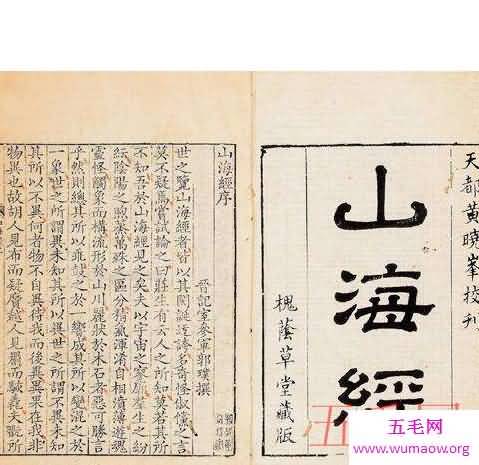 天都黄曉峯校刊
山海經
槐蔭草堂藏版
山海經序
晉記室參軍郭璞撰
世之覽山海經者皆以其閎誕迂誇多奇怪俶儻之言
莫不疑焉嘗試論之曰莊生有云人之所知莫若其所
不知吾於山海經見之矣夫以宇宙之寥廓羣生之紛
紜陰陽之煦蒸萬殊之區分精氣渾淆自相濆薄遊魂
靈怪觸象而構流形於山川麗狀於木石者惡可勝言
乎然則總其所以乖鼓之於一響成其所以變混之於
一象世之所謂異未知其所以異世之所謂不異未知
其所以不異何者物不自異待我而後異異果在我非
物異也故胡人見布而疑黂越人見罽而駭毳夫翫所
五毛网
www.wumaow.com